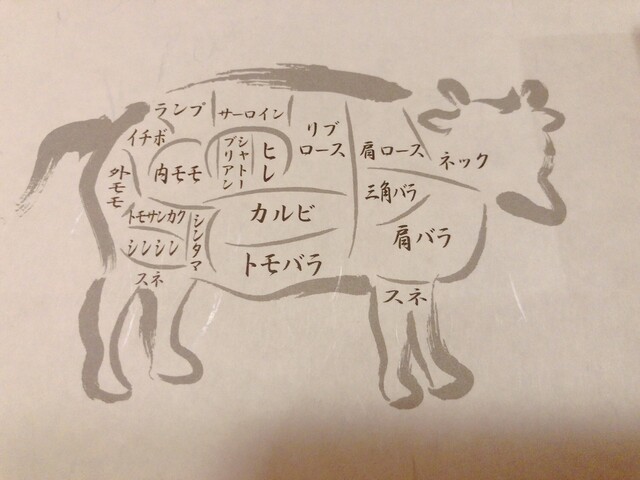 ランプ
サーロイン
リブ
ロース
イチボ
内モモ
シャトー
ブリアン
ヒレ
肩ロース
ネック
外モモ
三角バラ
トモサンカク
シンタマ
カルビ
肩バラ
シンシン
トモバラ
スネ
スネ